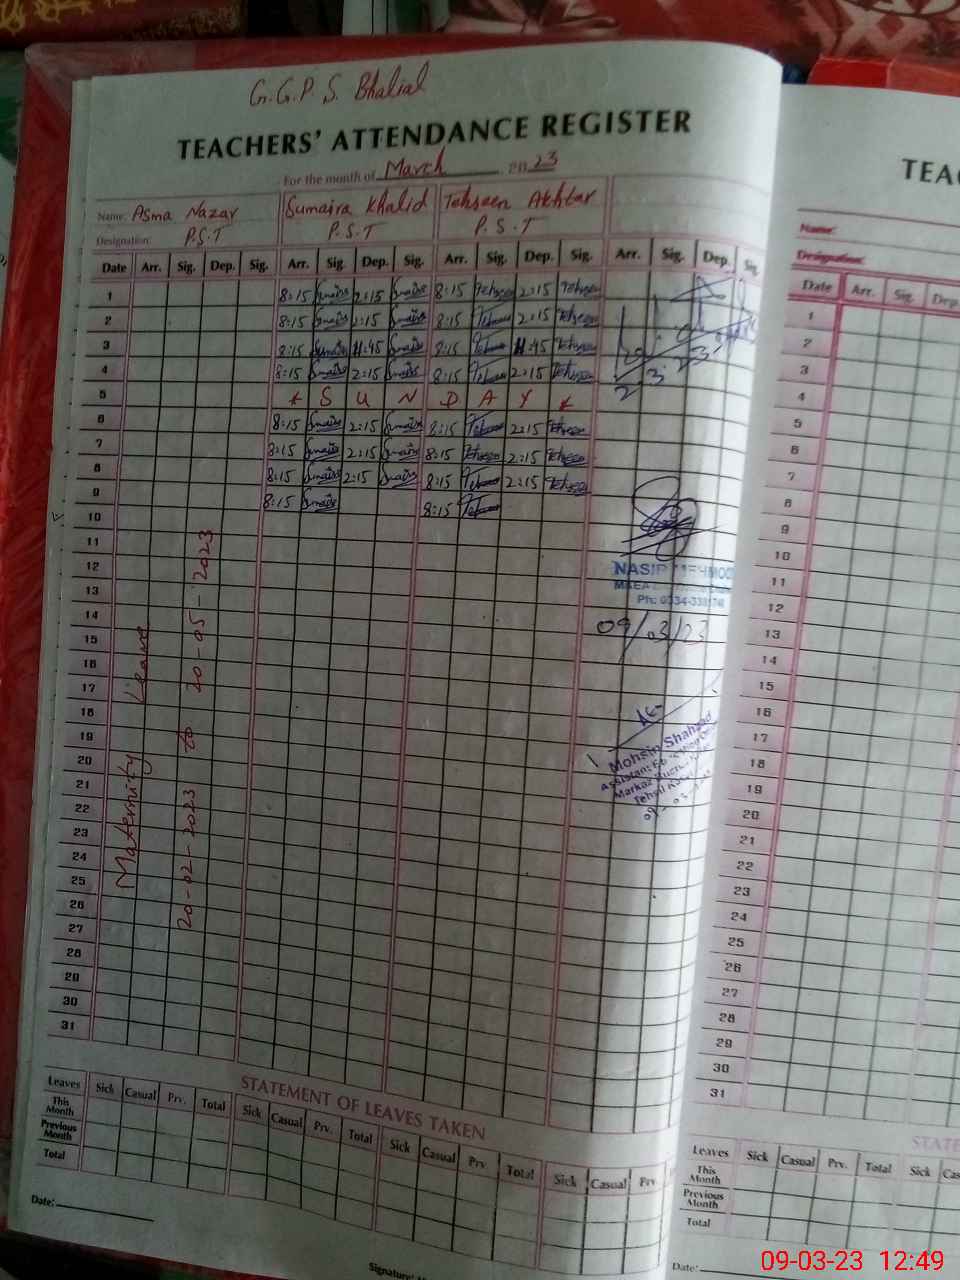 G.G.P.S. Bhalial
TEACHERS' ATTENDANCE REGISTER
For the month of March 2023
Name: Asma Nazar Sumaira Khalid Tehseen Akhtar
Designation: P.S.T P.S.T P.S.T
Date Arr. Sig. Dep. Sig. Arr. Sig. Dep. Sig. Arr. Sig. Dep. Sig. Arr. Sig. Dep. Sig.
1 8:15 2:15 8:15 Tehseen 2:15 Tehseen
2 8:15 2:15 8:15 2:15 Tehseen
3 8:15 11:45 8:15 11:45 Tehseen
4 8:15 2:15 8:15 2:15 Tehseen
5 S U N D A Y
6 8:15 2:15 8:15 2:15 Tehseen
7 8:15 2:15 8:15 Tehseen 2:15 Tehseen
8 8:15 2:15 8:15 2:15 Tehseen
9 8:15 8:15
10
11
12
13
14
15
16
17
18
19
20
21
22
23
24
25
26
27
28
29
30
31
Maternity Leave
20-02-2023 to 20-05-2023
2.3.
NASIR MEHMOOD
MAEA
Ph: 0334-
09/03/23
AE-
Mohsin Shahzad
Assistant
Markaz
Tehsil
STATEMENT OF LEAVES TAKEN
Leaves Sick Casual Prv. Total Sick Casual Prv. Total Sick Casual Prv. Total Sick Casual Prv.
This Month
Previous Month
Total
Date:
Signature:
TEA
Name:
Designation:
Date Arr. Sig. Dep.
1
2
3
4
5
6
7
8
9
10
11
12
13
14
15
16
17
18
19
20
21
22
23
24
25
26
27
28
29
30
31
STATE
Leaves Sick Casual Prv. Total Sick Cas
This Month
Previous Month
Total
Date:
09-03-23 12:49